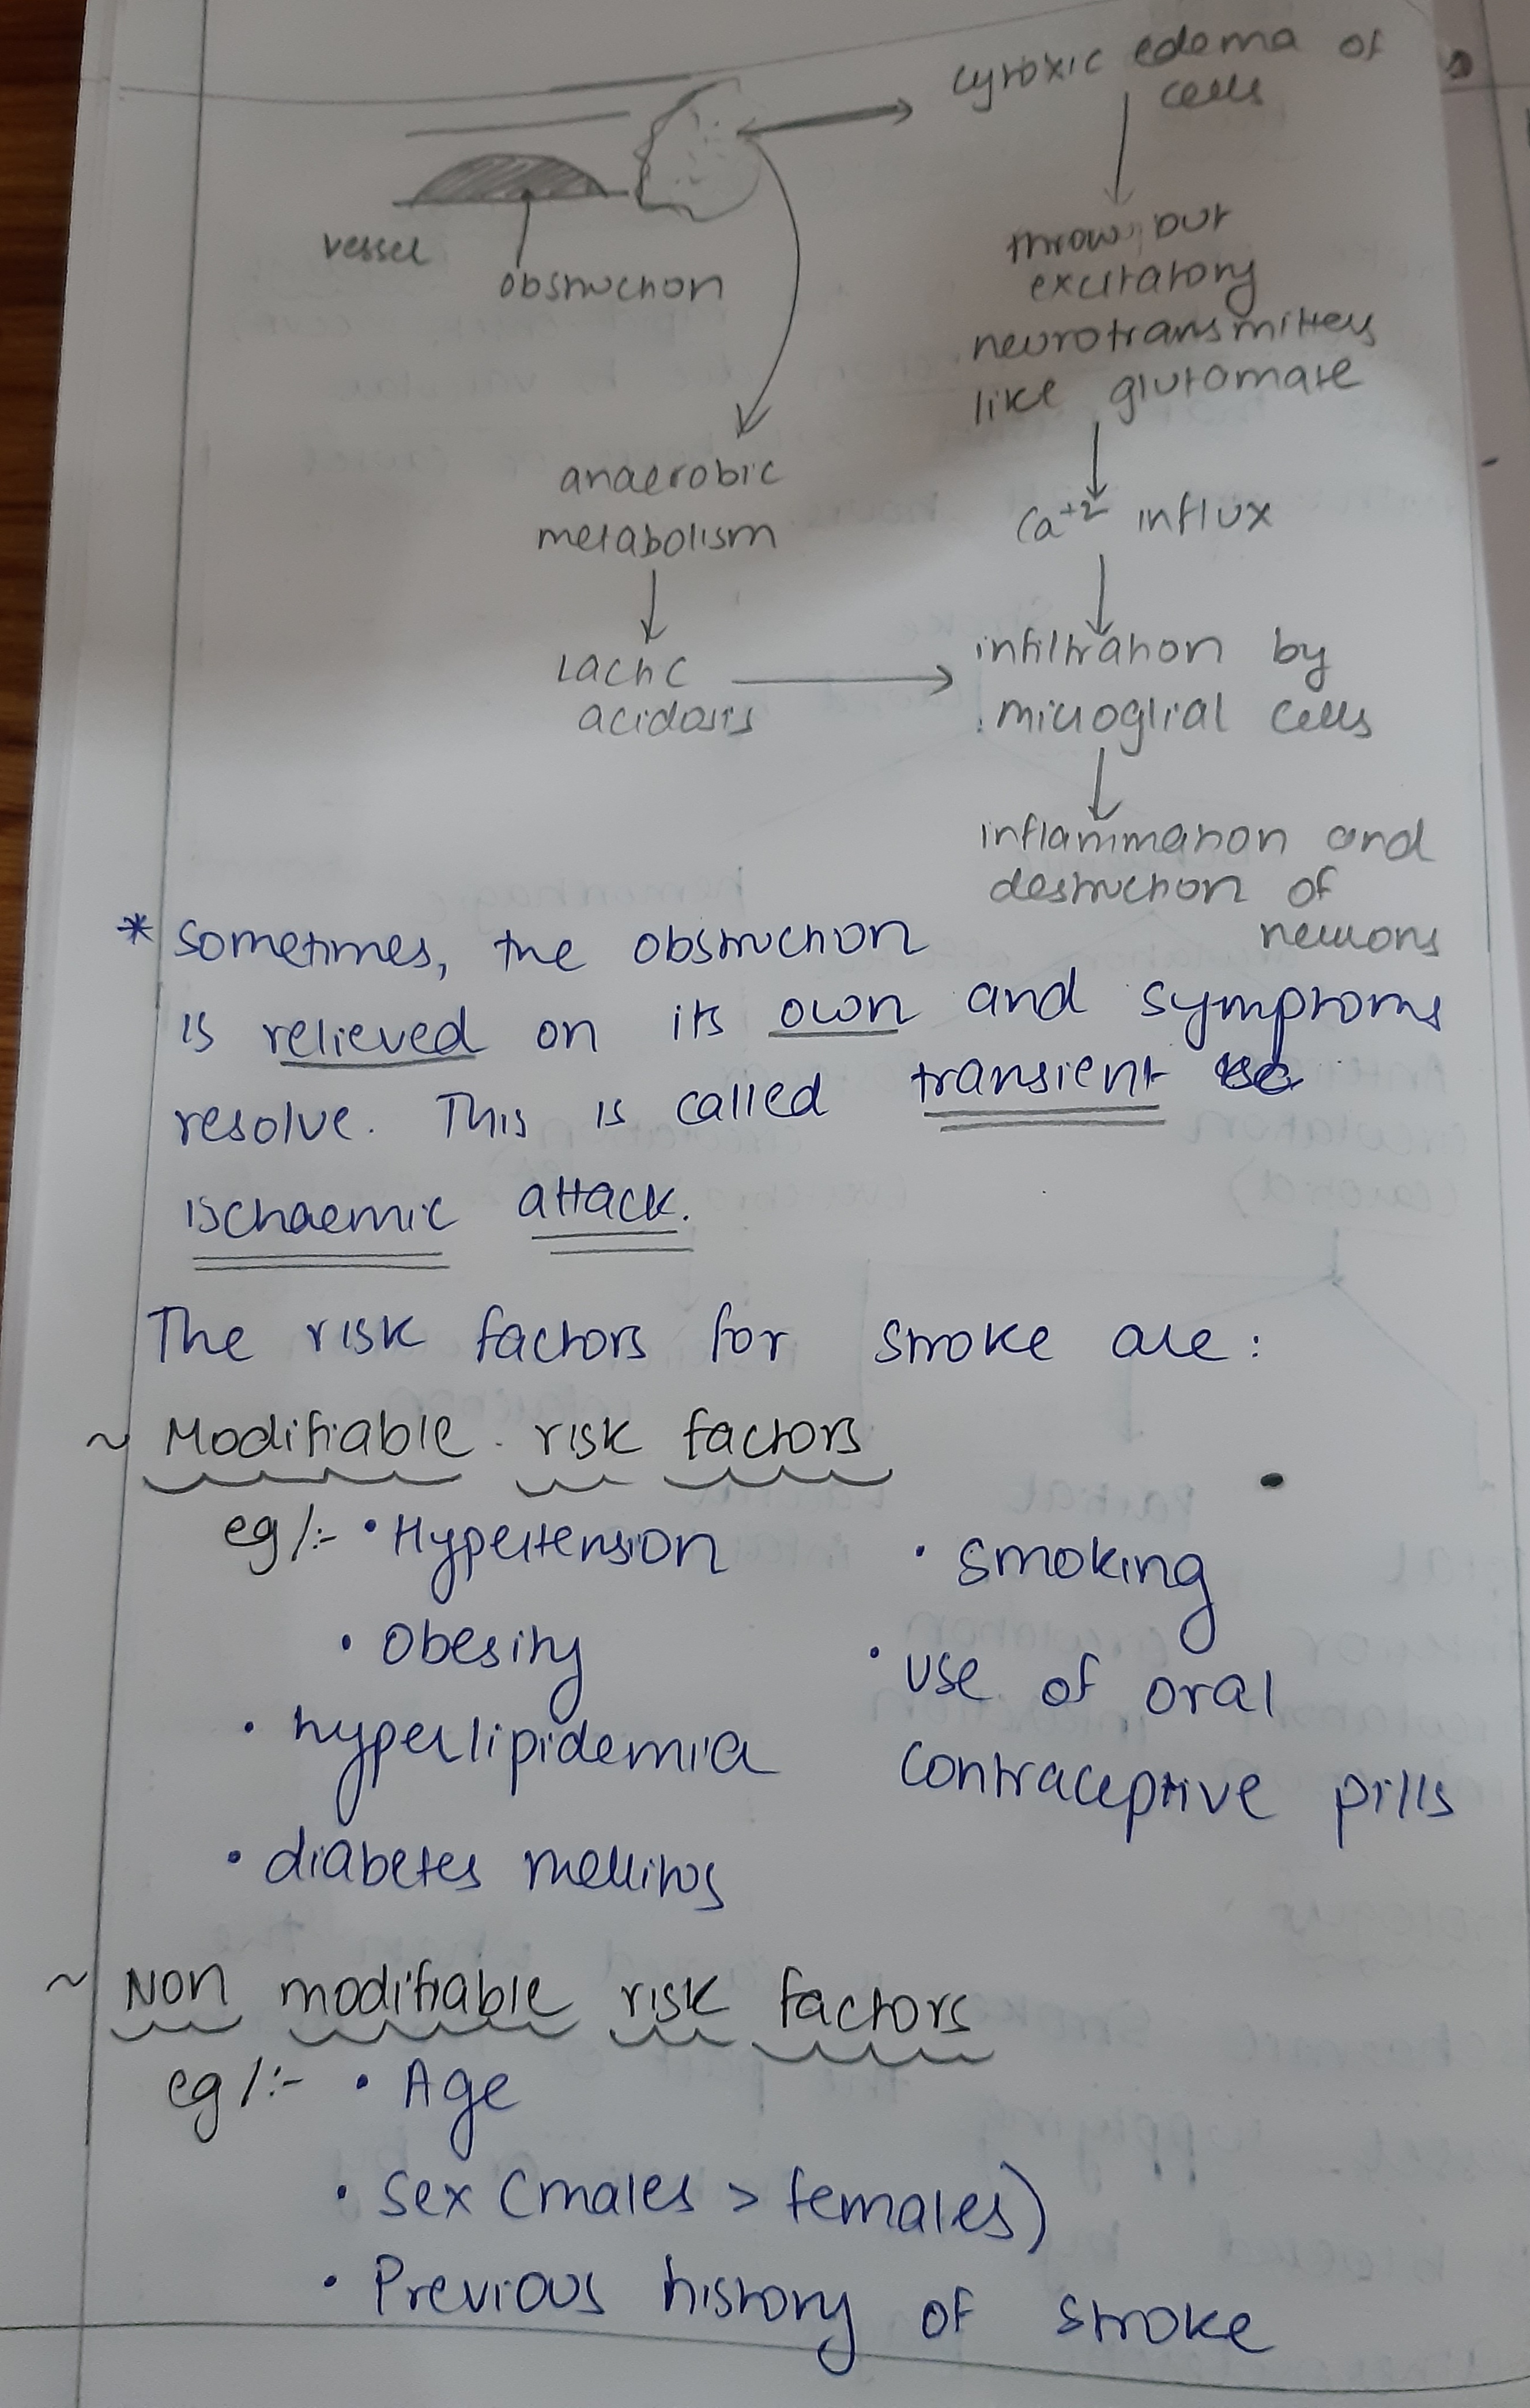 cytoxic edema of
cells
vessel
obstruction
throw out
excitatory
neurotransmitters
like glutamate
anaerobic
metabolism
Ca+2 influx
Lactic
acidosis
infiltration by
microglial cells
inflammation and
destruction of
neurons
* Sometimes, the obstruction
is relieved on its own and symptoms
resolve. This is called transient
ischaemic attack.
The risk factors for stroke are:
~ Modifiable risk factors
eg/:- • Hypertension
• smoking
• Obesity
• use of oral
contraceptive pills
• hyperlipidemia
• diabetes mellitus
~ Non modifiable risk factors
eg/:- • Age
• sex (males > females)
• Previous history of stroke